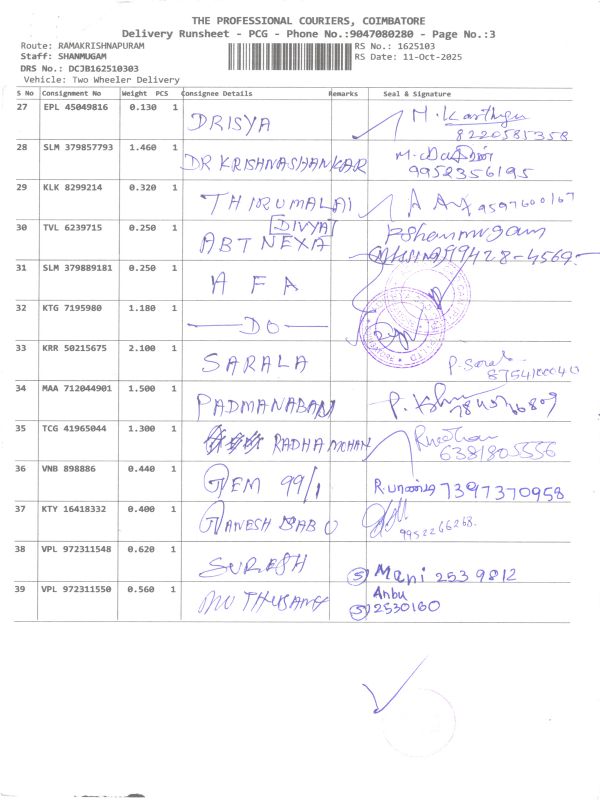 THE PROFESSIONAL COURIERS, COIMBATORE
Delivery Runsheet - PCG - Phone No.:9047080280 - Page No.:3
Route: RAMAKRISHNAPURAM RS No.: 1625103
Staff: SHANMUGAM RS Date: 11-Oct-2025
DRS No.: DCJB162510303
Vehicle: Two Wheeler Delivery
S No Consignment No Weight PCS Consignee Details Remarks Seal & Signature
27 EPL 45049816 0.130 1 DRISYA M. Karthiga
8220585358
28 SLM 379857793 1.460 1 DR KRISHNASHANKAR
9952356195
29 KLK 8299214 0.320 1 THIRUMALAI 9597600167
30 TVL 6239715 0.250 1 DIVYA
ABT NEXA PShanmugam
99428-4569-
31 SLM 379889181 0.250 1 A F A
32 KTG 7195980 1.180 1 — DO —
33 KRR 50215675 2.100 1 SARALA P. Sarala
8754100040
34 MAA 712044901 1.500 1 PADMANABAN
35 TCG 41965044 1.300 1 RADHA MOHAN
6381805556
36 VNB 898886 0.440 1 GEM 99/1 7397370958
37 KTY 16418332 0.400 1 GANESH BABU
9952266268.
38 VPL 972311548 0.620 1 SURESH (S) Mani 2539812
39 VPL 972311550 0.560 1 MUTHUSAMY Anbu
(S) 2530160